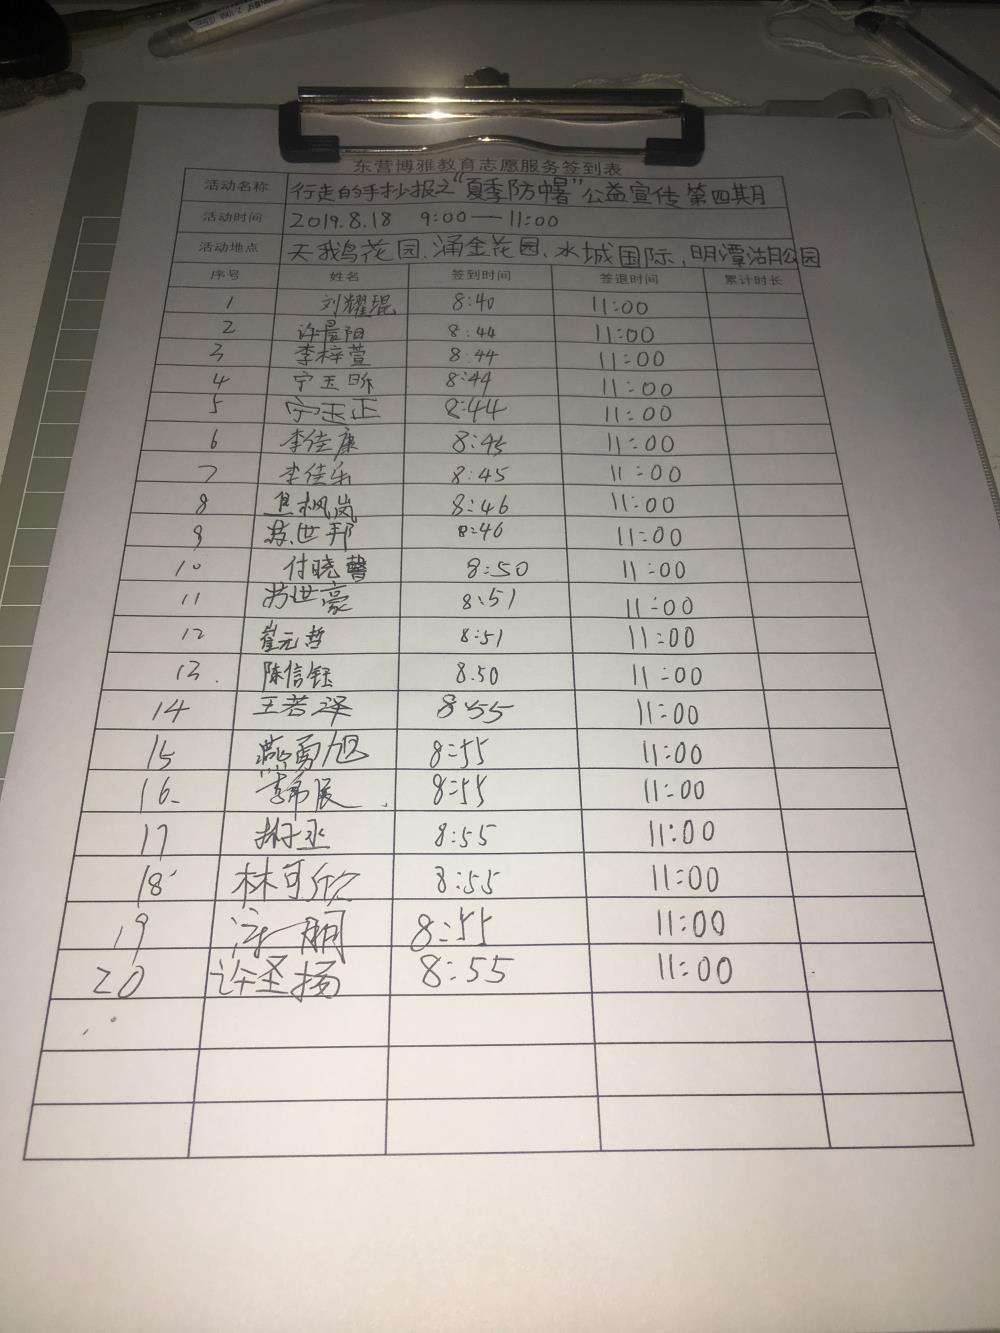 东营博雅教育志愿服务签到表
活动名称 行走的手抄报之"夏季防暑"公益宣传 第四期
活动时间 2019.8.18 9:00—11:00
活动地点 天鹅花园、涌金花园、水城国际、明潭湖公园
序号 姓名 签到时间 签退时间 累计时长
1 刘耀琨 8:40 11:00
2 许晨阳 8:44 11:00
3 李梓萱 8:44 11:00
4 宁玉昕 8:44 11:00
5 宁玉正 8:44 11:00
6 李佳康 8:45 11:00
7 李佳乐 8:45 11:00
8 枫岚 8:46 11:00
9 苏世邦 8:46 11:00
10 付晓馨 8:50 11:00
11 苏世豪 8:51 11:00
12 崔元哲 8:51 11:00
13. 陈信钰 8.50 11:00
14 王若泽 8:55 11:00
15 燕勇旭 8:55 11:00
16. 李希展 8:55 11:00
17 8:55 11:00
18 林可欣 8:55 11:00
19 8:55 11:00
20 许圣扬 8:55 11:00